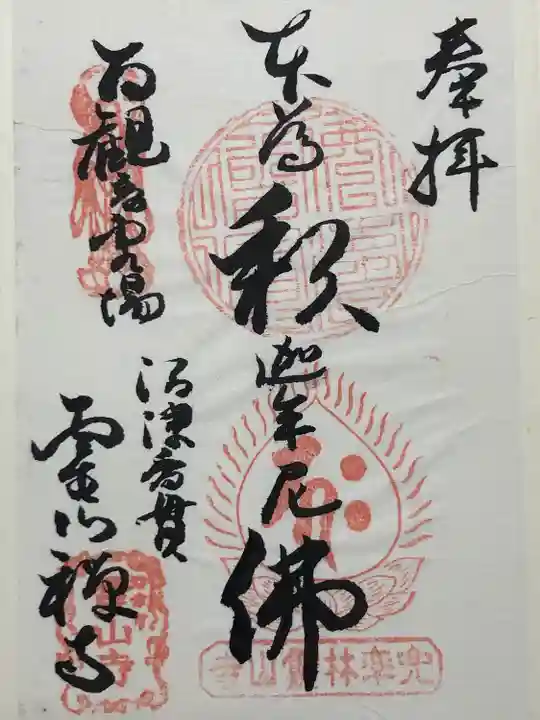 奉拝
本尊
釈迦牟尼佛
百観音霊場
沼津香貫
霊山禅寺
兜率林霊山寺
山寺